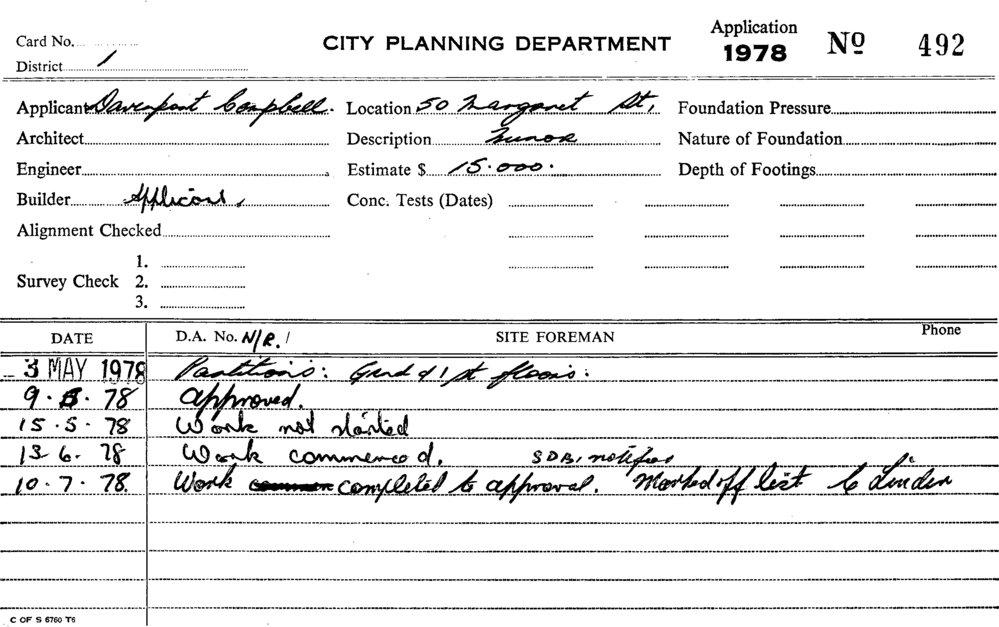 Application
Card No.
CITY PLANNING DEPARTMENT 1978 No 492
District 1
Applicant Davenport Campbell. Location 50 Margaret St, Foundation Pressure
Architect Description Minor Nature of Foundation
Engineer Estimate $ 15.000. Depth of Footings
Builder Applicant, Conc. Tests (Dates)
Alignment Checked
1.
Survey Check 2.
3.
DATE D.A. No. N/R. / SITE FOREMAN Phone
3 MAY 1978 Partitions: Grnd & 1st floors.
9.5.78 approved.
15.5.78 Work not started
13 6. 78 Work commenced. SDB, notified
10.7.78. Work completed to approval. Marked off list
C OF S 6760 T6